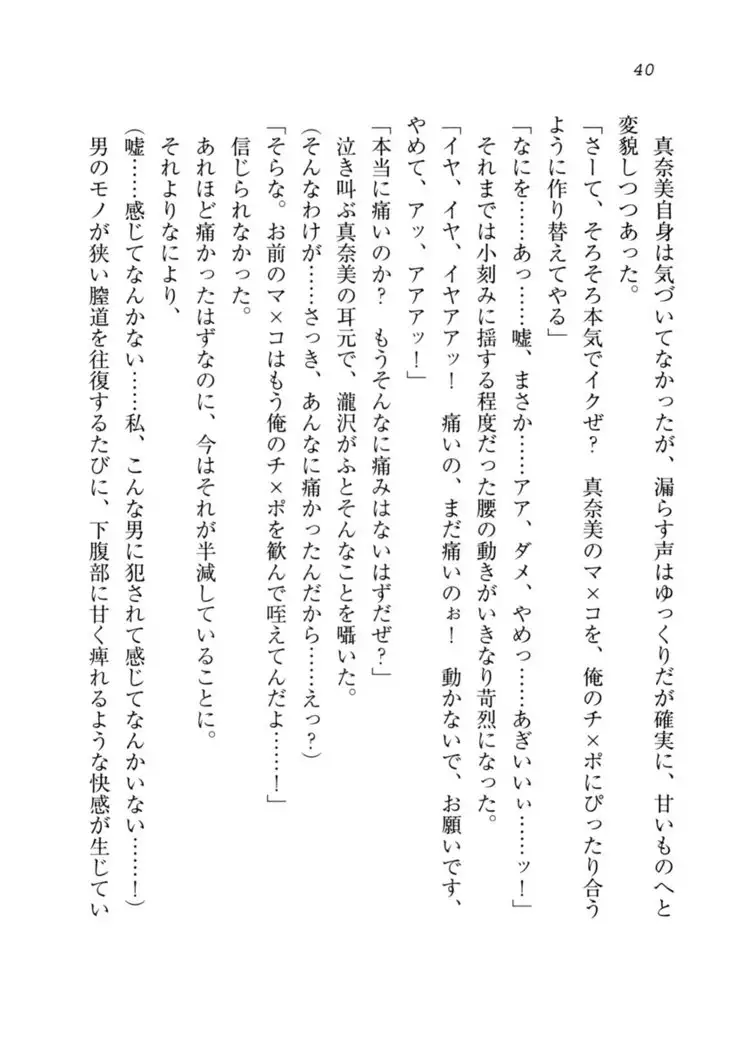 40
真奈美自身は気づいてなかったが、漏らす声はゆっくりだが確実に、甘いものへと
変貌しつつあった。
「さーて、そろそろ本気でイクぜ？　真奈美のマ×コを、俺のチ×ポにぴったり合う
ように作り替えてやる」
「なにを……あっ……嘘、まさか……アア、ダメ、やめっ……あぎいいぃ……ッ！」
それまでは小刻みに揺する程度だった腰の動きがいきなり苛烈になった。
「イヤ、イヤ、イヤアアッ！　痛いの、まだ痛いのぉ！　動かないで、お願いです、
やめて、アッ、アアアッ！」
「本当に痛いのか？　もうそんなに痛みはないはずだぜ？」
泣き叫ぶ真奈美の耳元で、瀧沢がふとそんなことを囁いた。
（そんなわけが……さっき、あんなに痛かったんだから……えっ？）
「そらな。お前のマ×コはもう俺のチ×ポを歓んで咥えてんだよ……！」
信じられなかった。
あれほど痛かったはずなのに、今はそれが半減していることに。
それよりなにより、
（嘘……感じてなんかない……私、こんな男に犯されて感じてなんかいない……！）
男のモノが狭い膣道を往復するたびに、下腹部に甘く痺れるような快感が生じてい